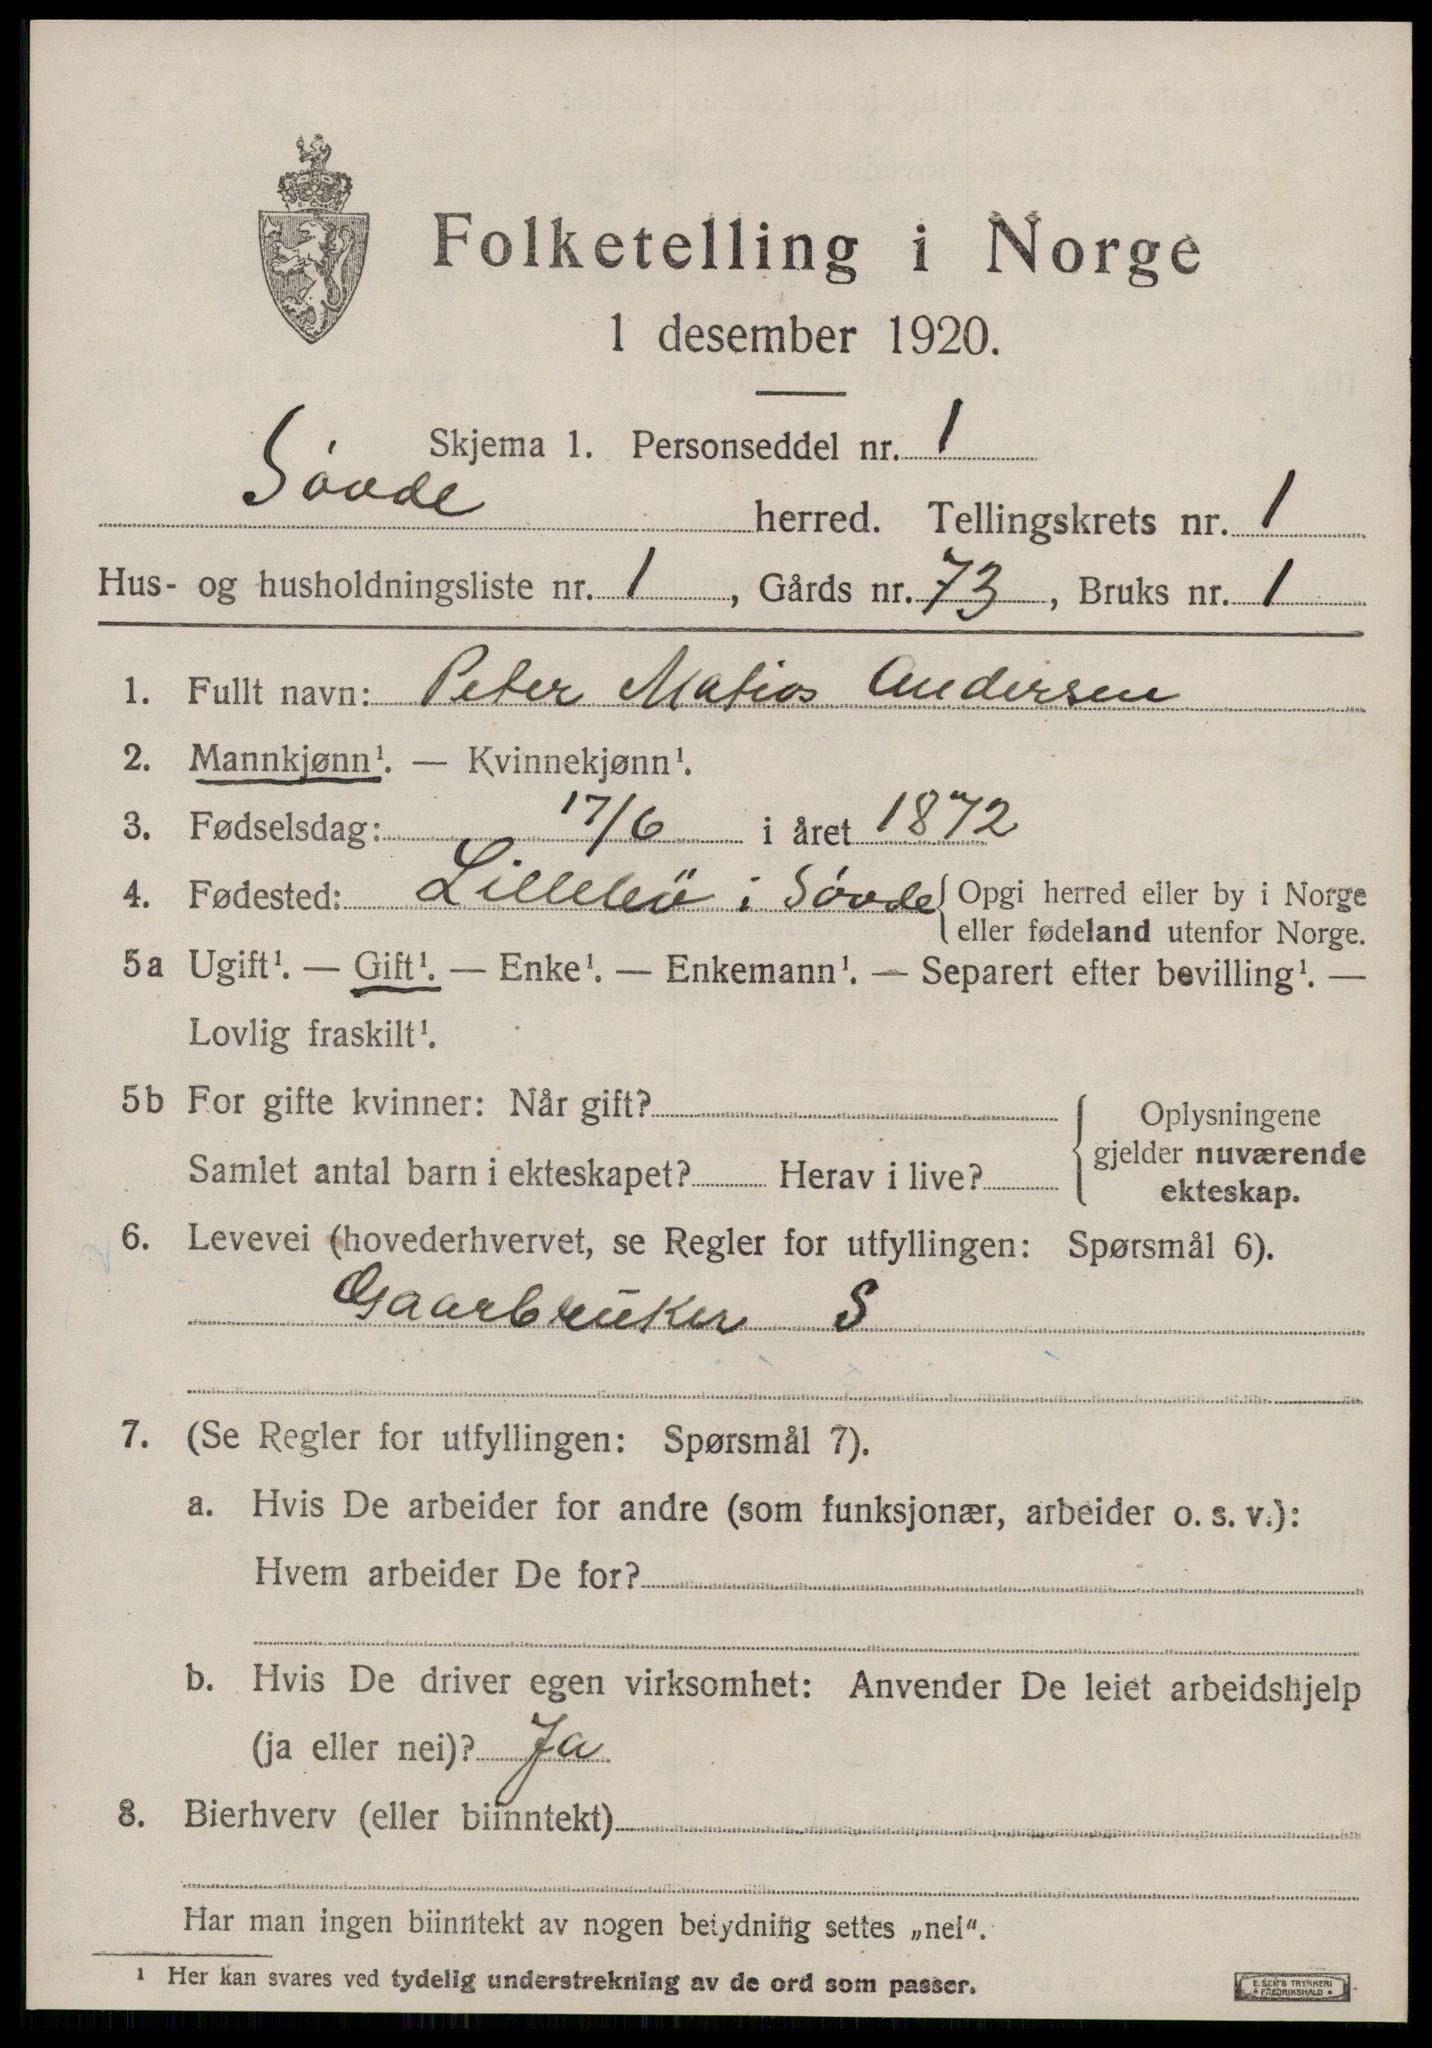 Folketelling i Norge
1 desember 1920.
Skjema 1. Personseddel nr. 1
Søvde herred. Tellingskrets nr. 1
Hus- og husholdningsliste nr. 1, Gårds nr. 73, Bruks nr. 1
1. Fullt navn: Peter Matios Andersen
2. Mannkjønn¹. — Kvinnekjønn¹.
3. Fødselsdag: 17/6 i året 1872
4. Fødested: Lillebö i Søvde {Opgi herred eller by i Norge
eller fødeland utenfor Norge.
5a Ugift¹. — Gift¹. — Enke¹. — Enkemann¹. — Separert efter bevilling¹. —
Lovlig fraskilt¹.
5b For gifte kvinner: Når gift?
Samlet antal barn i ekteskapet? Herav i live?
{Oplysningene
gjelder nuværende
ekteskap.
6. Levevei (hovederhvervet, se Regler for utfyllingen: Spørsmål 6).
Gaarbruker S
7. (Se Regler for utfyllingen: Spørsmål 7).
a. Hvis De arbeider for andre (som funksjonær, arbeider o. s. v.):
Hvem arbeider De for?
b. Hvis De driver egen virksomhet: Anvender De leiet arbeidshjelp
(ja eller nei)? Ja
8. Bierhverv (eller biinntekt)
Har man ingen biinntekt av nogen betydning settes „nei".
¹ Her kan svares ved tydelig understrekning av de ord som passer.
E. SEM'S TRYKKERI
FREDRIKSHALD